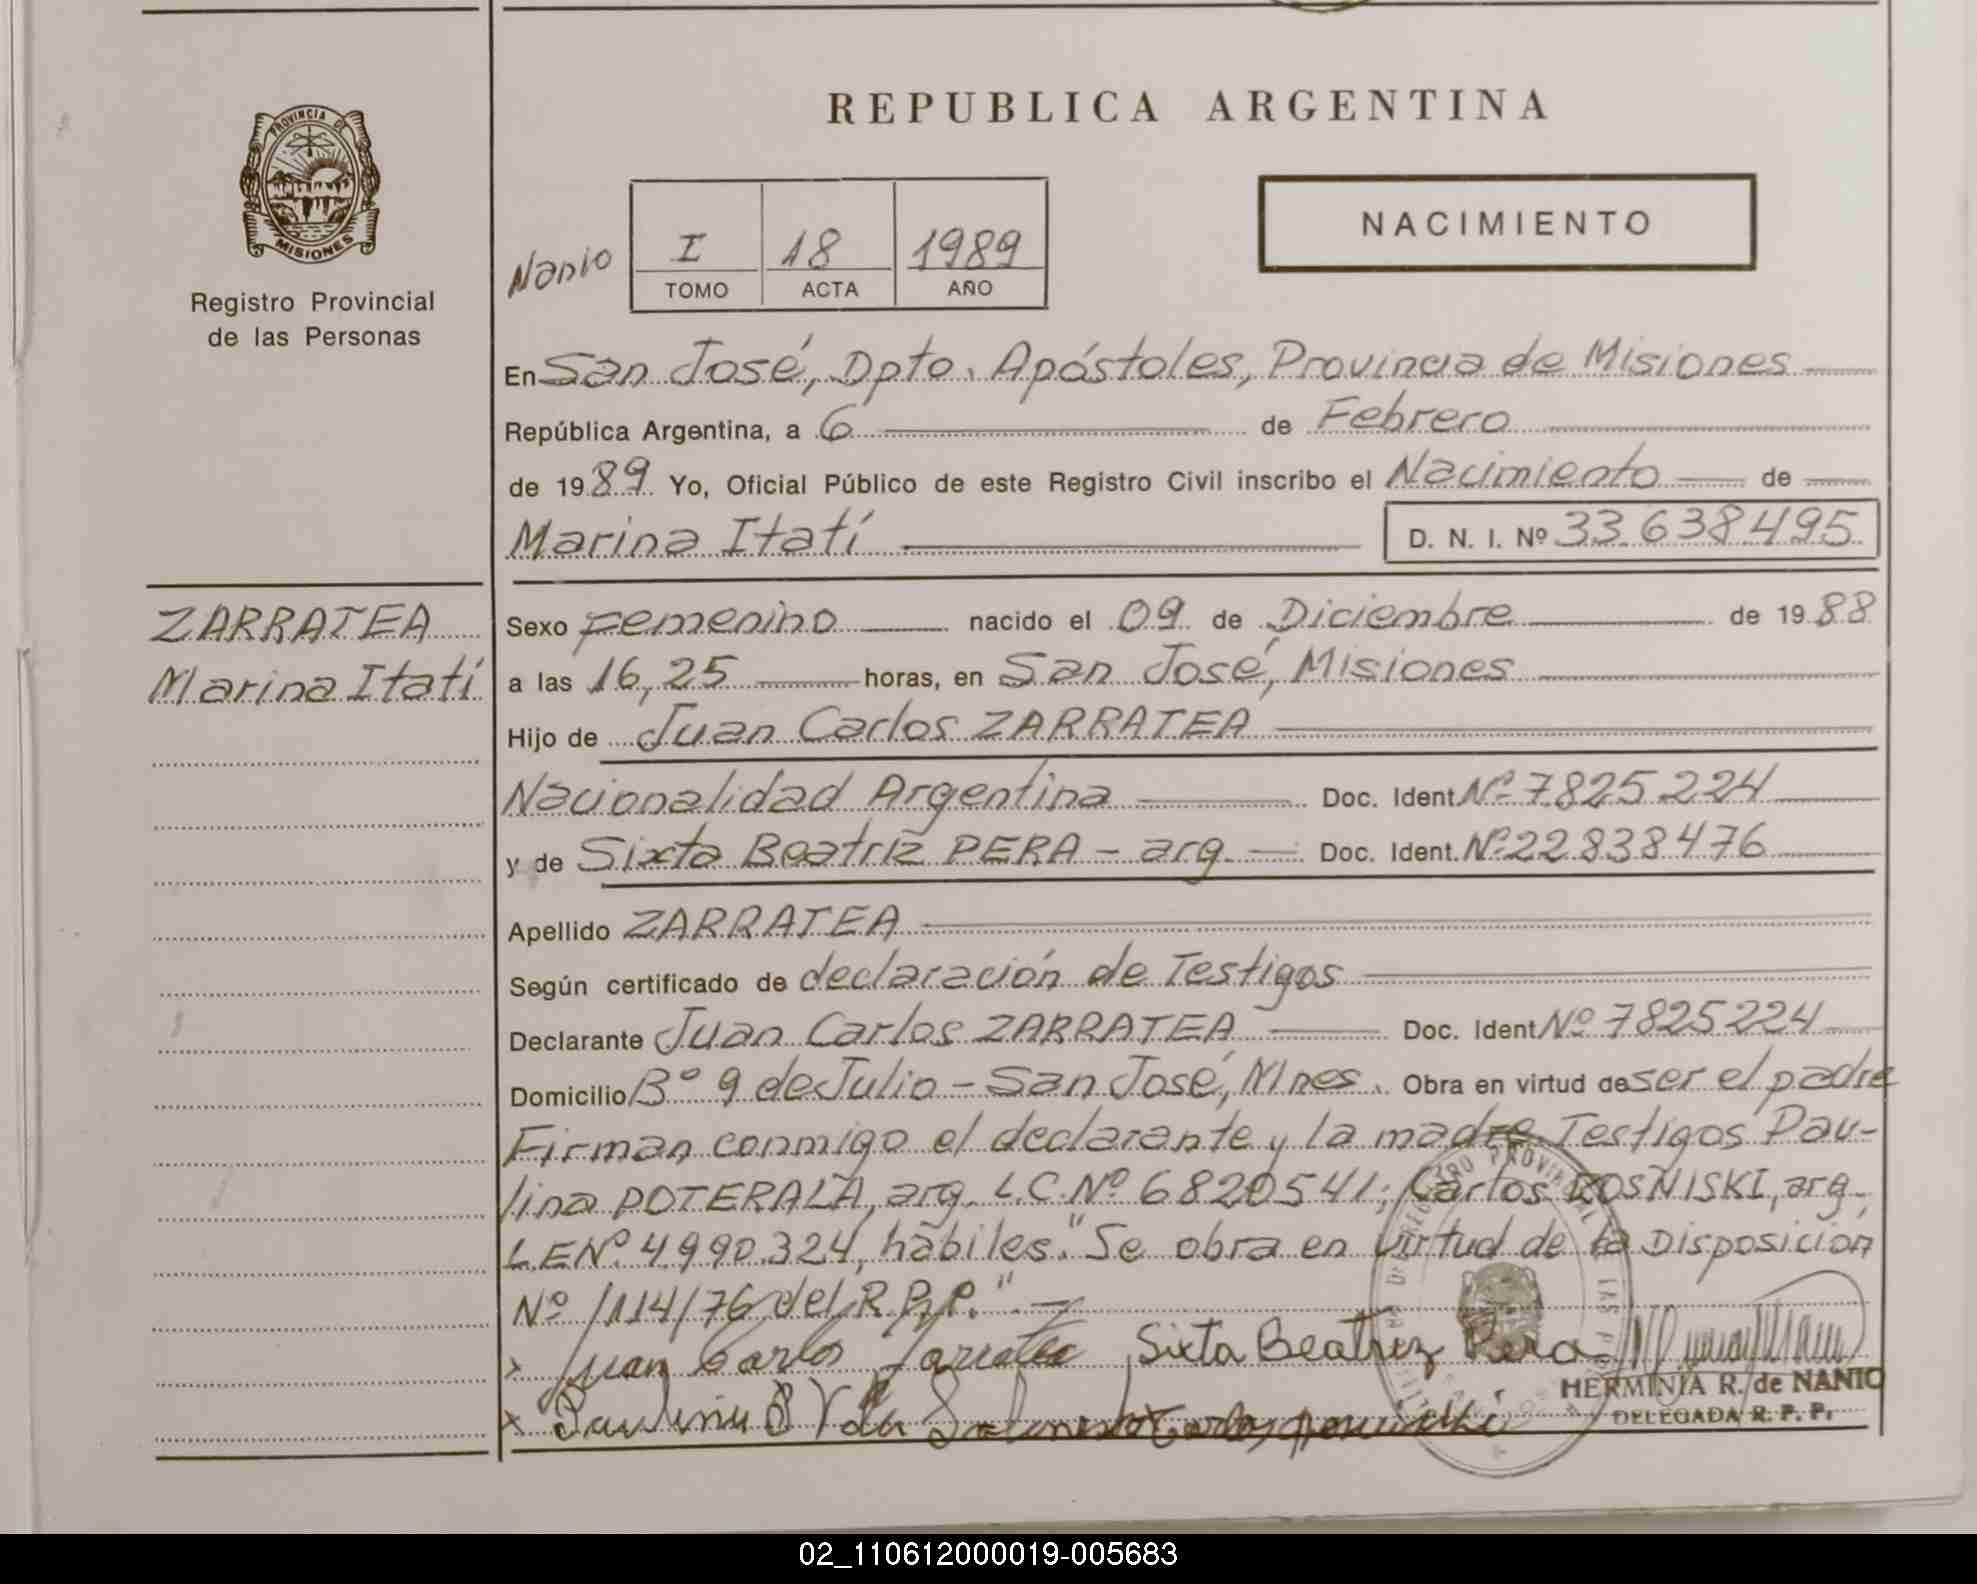 REPUBLICA ARGENTINA
PROVINCIA DE
MISIONES
Registro Provincial
de las Personas
Nanio
I 18 1989
TOMO ACTA AÑO
NACIMIENTO
En San José, Dpto. Apóstoles, Provincia de Misiones
República Argentina, a 6 de Febrero
de 1989 Yo, Oficial Público de este Registro Civil inscribo el Nacimiento de
Marina Itatí D. N. I. Nº 33.638.495
ZARRATEA
Marina Itatí
Sexo Femenino nacido el 09 de Diciembre de 1988
a las 16,25 horas, en San José, Misiones
Hijo de Juan Carlos ZARRATEA
Nacionalidad Argentina Doc. Ident. Nº 7.825.224
y de Sixta Beatriz PERA - arg. Doc. Ident. Nº 22.838.476
Apellido ZARRATEA
Según certificado de declaración de Testigos
Declarante Juan Carlos ZARRATEA Doc. Ident. Nº 7825224
Domicilio Bº 9 de Julio - San José, Mnes. Obra en virtud de ser el padre
Firman conmigo el declarante y la madre. Testigos Pau-
lina POTERALA, arg. L.C.Nº 6820541; Carlos ROSÑISKI, arg.,
L.E.Nº 4.990.324, hábiles. "Se obra en virtud de la Disposición
Nº 114/76 del R.P.P." -
x Juan Carlos Zarratea Sixta Beatriz Pera
HERMINIA R. de NANIO
DELEGADA R. P. P.
x
02_110612000019-005683